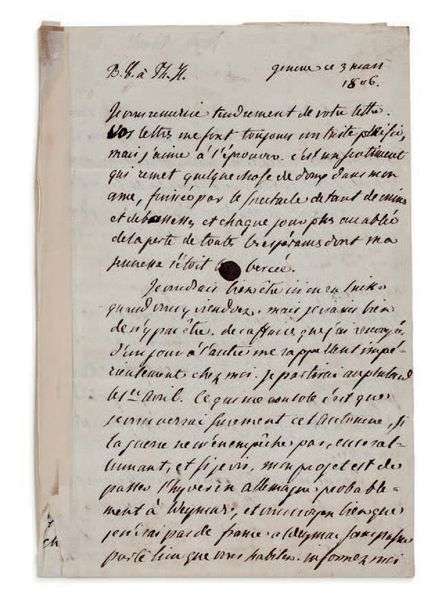 B. C. à Th. H.
genève ce 3 mars
1806.
Je vous remercie tendrement de votre lettre.
Vos lettres me font toujours un triste plaisir,
mais j'aime à l'éprouver. c'est un sentiment
qui remet quelque chose de doux dans mon
ame, froissée par le spectacle de tant de
et de bassesses, et chaque jour plus accablée
de la perte de toutes les espérances dont ma
jeunesse s'étoit bercée.
Je voudrais bien être ici ou en Suisse
quand vous y viendrez, mais je crains bien
de n'y pas être. des affaires que j'ai
d'un jour à l'autre me rappellent impé-
rieusement chez moi. je partirai au plus tard
le 1er Avril. Ce qui me console c'est que
je vous verrai surement cet Automne, si
la guerre ne m'en empêche pas, en se ral-
lumant, et si je vis. mon projet est de
passer l'hyver en allemagne probable-
ment à Weymar, et vous croyez bien que
je n'irai pas de france à Weymar sans passer
par le lieu que vous habitez. informez moi